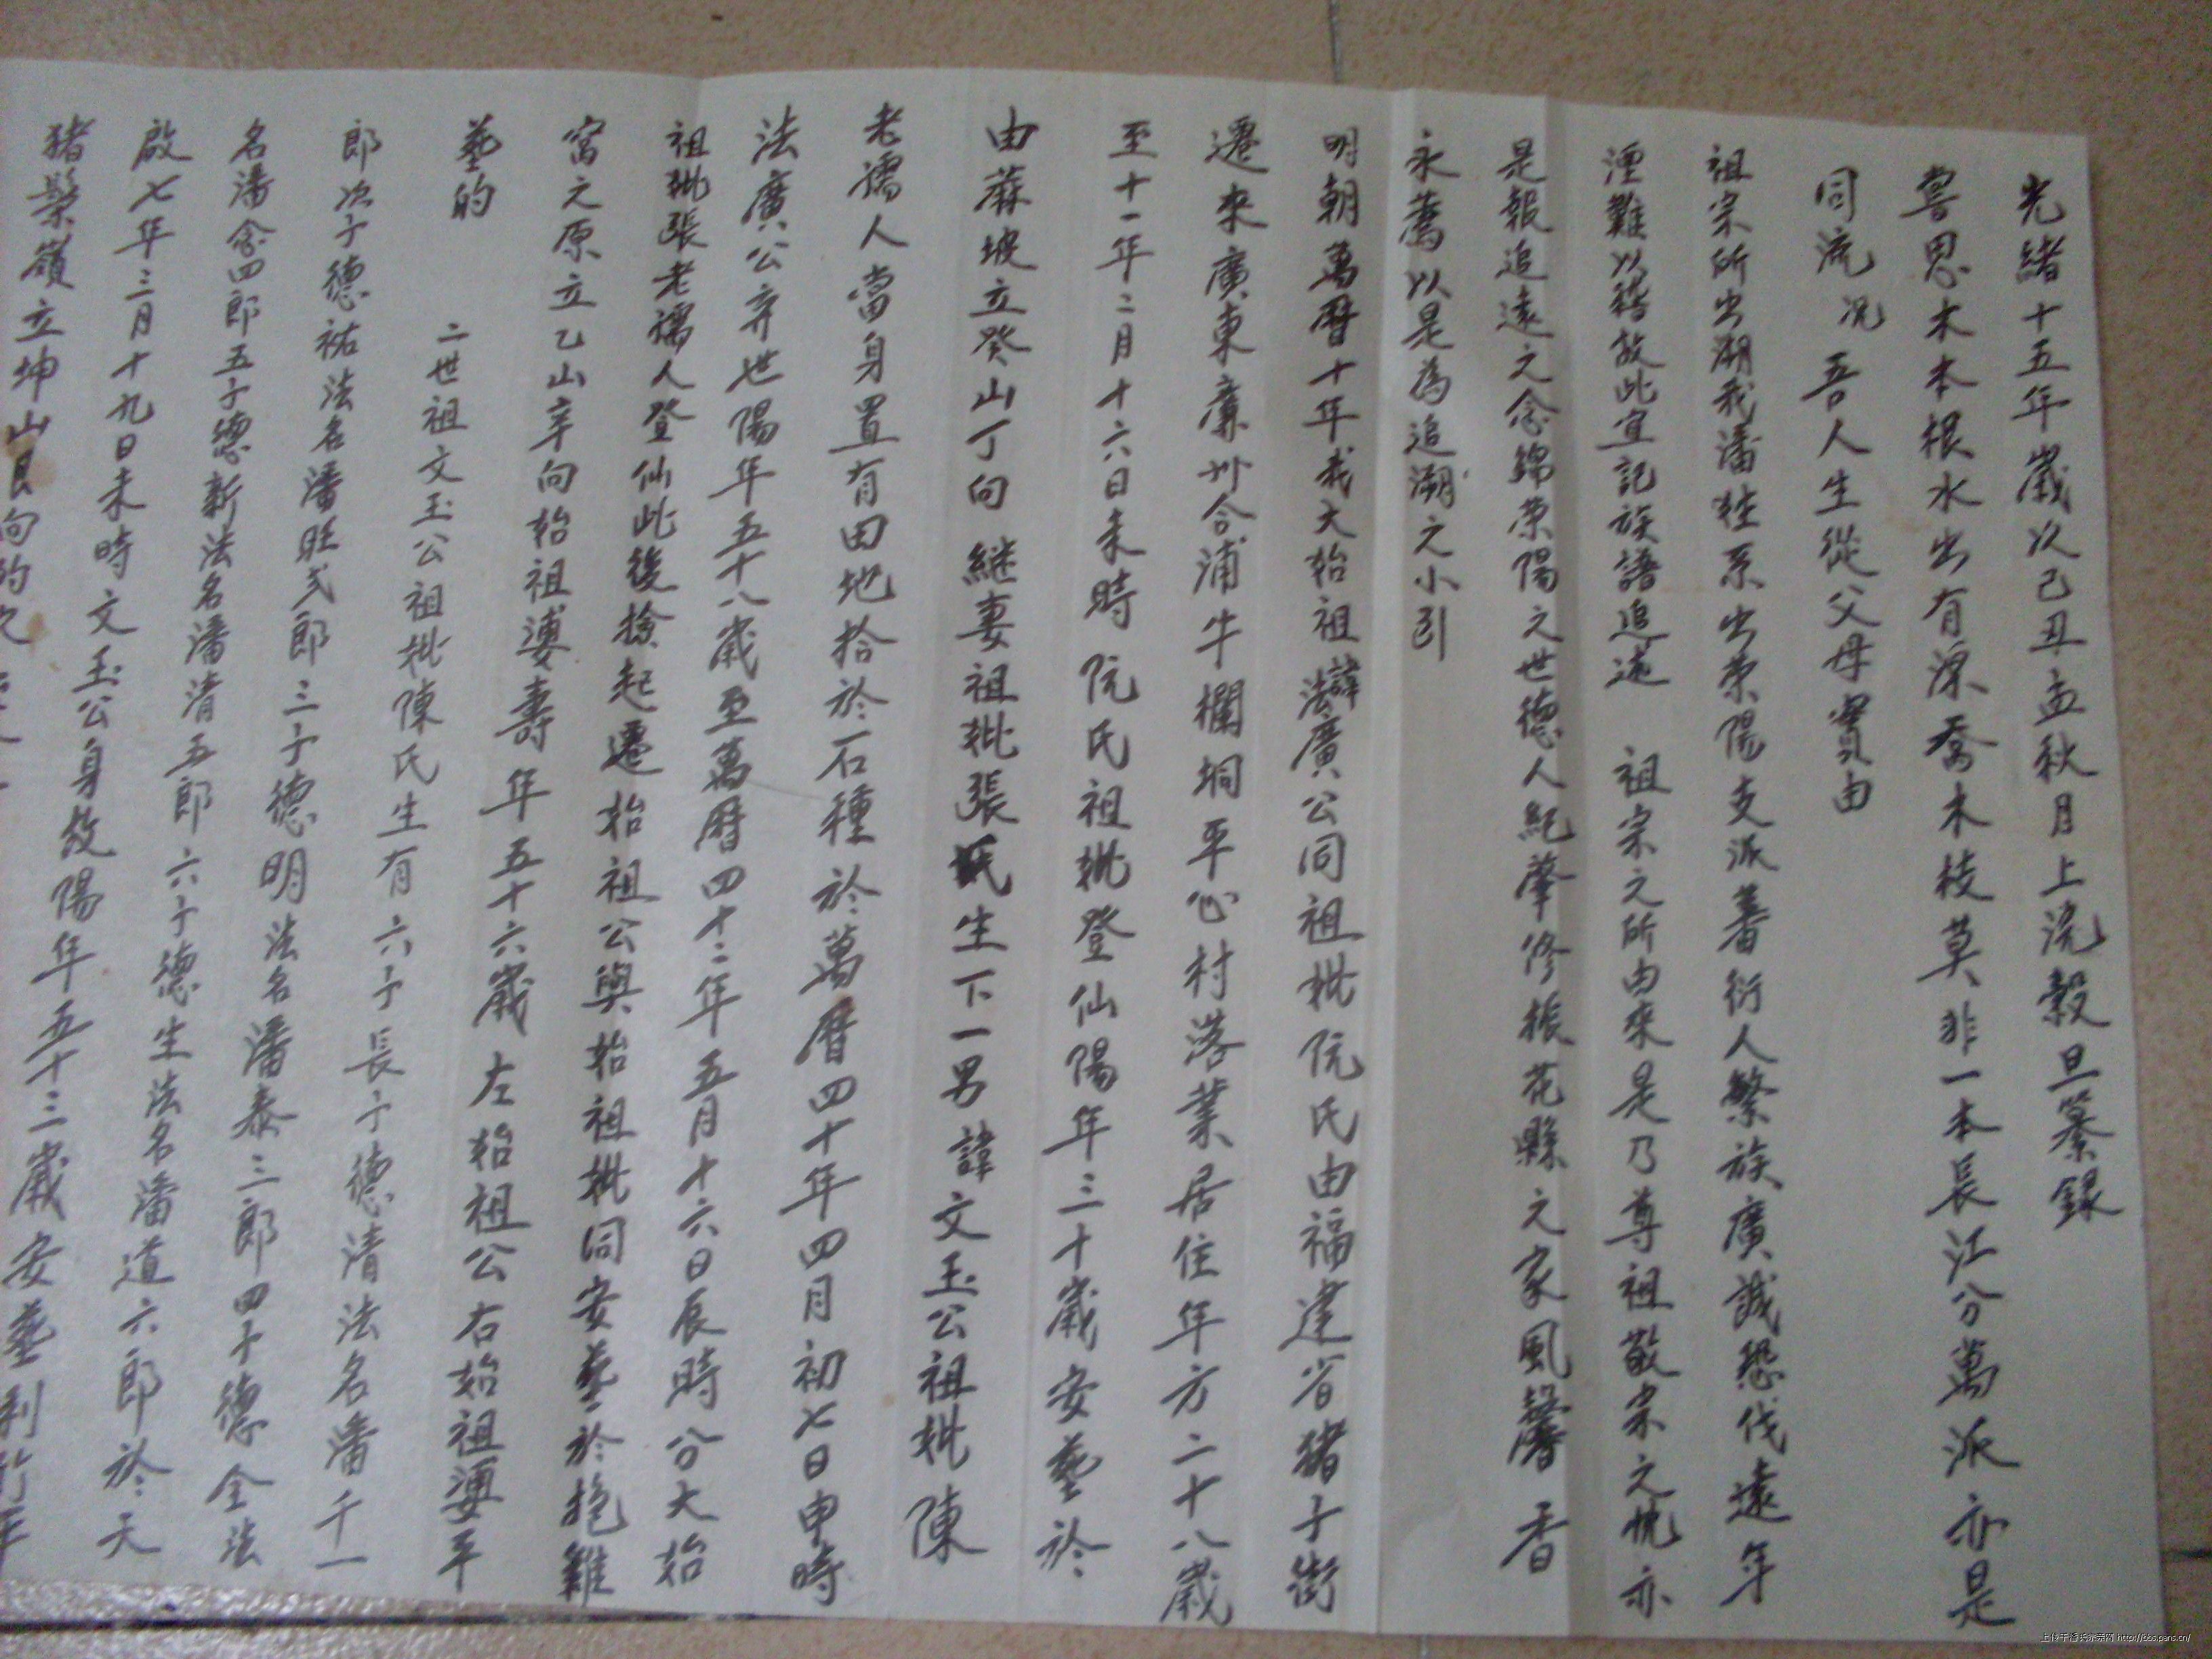 光緒十五年歲以己丑孟秋月上浣穀旦纂錄
嘗思木本根水出有源喬木枝莫非一本長江分萬派亦是
同流况 吾人生從父母實由
祖宗所出溯我潘姓系出荣陽支派蕃衍人繁族廣誠恐伐遠年
湮難以稽故此宜記族譜追遠 祖宗之所由來是乃尊祖敬宗之忱亦
是報追遠之念錦荣陽之世德人紀肇修振花縣之家風馨香
永薦以是為追溯之小引
明朝萬曆十年我大始祖諱法廣公同祖妣阮氏由福建省猪子街
遷來廣東廉州合浦牛欄垌平心村落業居住年方二十八歲
至十一年二月十六日未時阮氏祖妣登仙陽年三十歲安葬於
由蔴坡立癸山丁向 継妻祖妣張氏生下一男諱文玉公祖妣陳
老孺人當身置有田地拾於石種於萬曆四十年四月初七日申時
法廣公弃世陽年五十八歲至萬曆四十二年五月十六日辰時分大始
祖妣張老孺人登仙此後撿起遷始祖公與始祖妣同安葬於抱雞
窩之原立乙山辛向始祖婆壽年五十六歲左始祖公右始祖婆平
葬的 二世祖文玉公祖妣陳氏生有六子長子德清法名潘千一
郎次子德祐法名潘旺弍郎三子德明法名潘泰三郎四子德全法
名潘念四郎五子德新法名潘清五郎六子德生法名潘道六郎於天
啟七年三月十九日未時文玉公身故陽年五十三歲安葬
猪鬃嶺立坤山艮向的
上传于潘氏宗亲网 http://bbs.pans.cn/